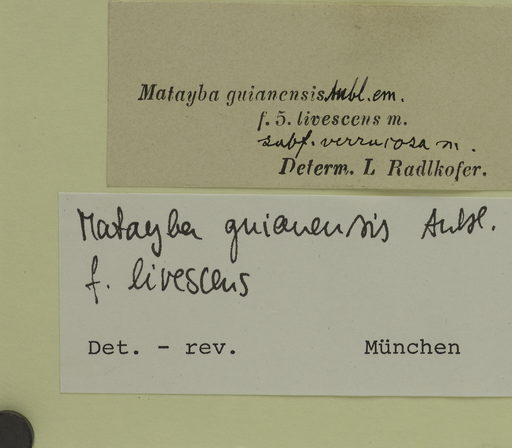 Matayba guianensis Aubl. em.
f. 5. livescens m.
subf. verrucosa m.
Determ. L Radlkofer.
Matayba guianensis Aubl.
f. livescens
Det. - rev. München